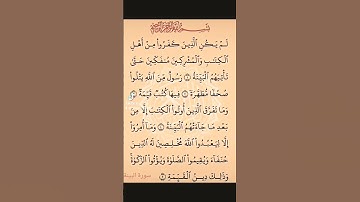 بِسْمِ ٱللَّهِ ٱلرَّحْمَٰنِ ٱلرَّحِيمِ
لَمْ يَكُنِ ٱلَّذِينَ كَفَرُوا۟ مِنْ أَهْلِ
ٱلْكِتَٰبِ وَٱلْمُشْرِكِينَ مُنفَكِّينَ حَتَّىٰ
تَأْتِيَهُمُ ٱلْبَيِّنَةُ ١ رَسُولٌ مِّنَ ٱللَّهِ يَتْلُوا۟
صُحُفًا مُّطَهَّرَةً ٢ فِيهَا كُتُبٌ قَيِّمَةٌ ٣
وَمَا تَفَرَّقَ ٱلَّذِينَ أُوتُوا۟ ٱلْكِتَٰبَ إِلَّا مِنۢ
بَعْدِ مَا جَآءَتْهُمُ ٱلْبَيِّنَةُ ٤ وَمَآ أُمِرُوٓا۟
إِلَّا لِيَعْبُدُوا۟ ٱللَّهَ مُخْلِصِينَ لَهُ ٱلدِّينَ
حُنَفَآءَ وَيُقِيمُوا۟ ٱلصَّلَوٰةَ وَيُؤْتُوا۟ ٱلزَّكَوٰةَ
وَذَٰلِكَ دِينُ ٱلْقَيِّمَةِ ٥
سورة البينة